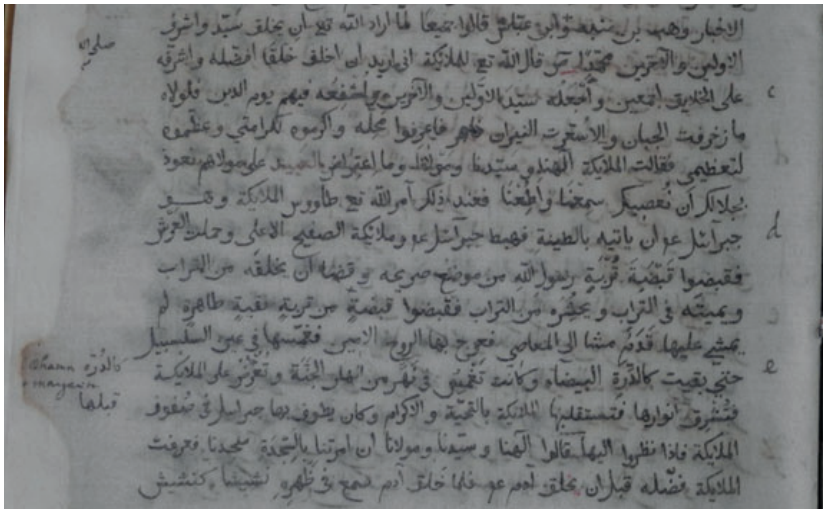 الاخبار وهب بن منبه وابن عباس قالوا جميعا لما اراد الله تع ان يخلق سيّد واشرف
صلى الله
الاولين والآخرين محمّدا ص قال الله تع للملايكة اني اريد ان اخلق خلقا افضله واشرفه
على الخلايق اجمعين وأجعله سيّد الاوّلين والآخرين وأشفعه فيهم يوم الدين فلولاه
c
ما زخرفت الجنان ولا سعرت النيران فاعرفوا محله واكرموه لكرامتي وعظموه
لتعظيمي فقالت الملايكة الهنا وسيّدنا ومولانا وما اعتراض العبيد على مولاهم نعوذ
بجلالك أن نعصيك سمعنا وأطعنا فعند ذلك امر الله تع طاووس الملايكة وهو
جبرائيل عم ان ياتيه بالطينة فهبط جبرائيل عم وملايكة الصفيح الاعلى وحملت العرش
d
فقبضوا قبضة تربة رسول الله من موضع ضريحه وقضا ان يخلقه من التراب
ويميته في التراب ويحشره من التراب فقبضوا قبضة من تربة نقية طاهرة لم
يمشي عليها قدم مشا الى المعاصي فعرج بها الروح الامين فغمسها في عين السلسبيل
حتى بقيت كالدّرة البيضاء وكانت تغمس في نهر من انهار الجنّة وتعرض على الملايكة
e
كالدُرّة
فتشرق انوارها فتستقبلها الملايكة بالتحية والاكرام وكان يطوف بها جبرائيل في صفوف
قبلها
الملايكة فاذا نظروا اليها قالوا الهنا وسيّدنا ومولانا ان امرتنا بالسّجدة سجدنا فعرفت
الملايكة فضله قبل ان يخلق آدم عم فلما خلق آدم سمع في ظهره نشيشا كنشيش